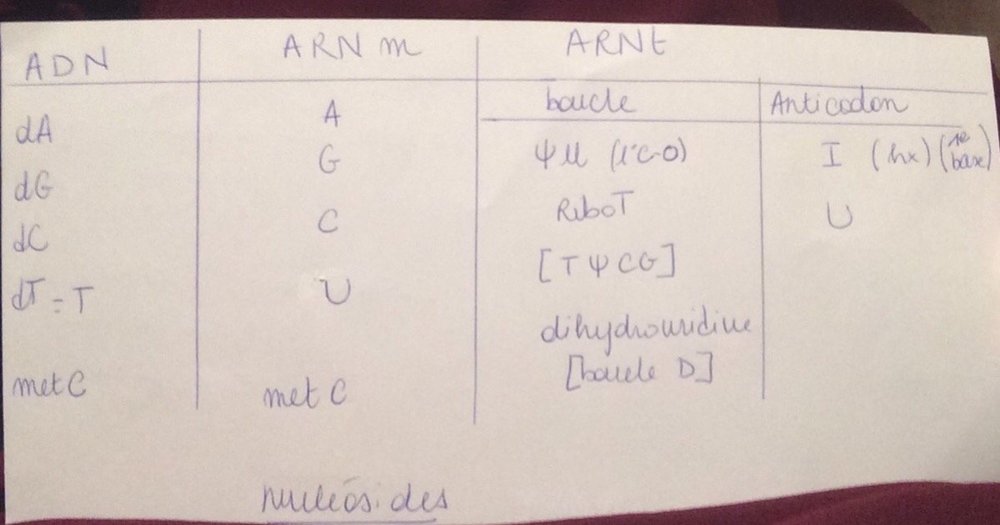 ADN ARN m ARNt
boucle Anticodon
dA A ΨU (1'C-O) I (hx) (1e base)
dG G RiboT U
dC C [TΨCG]
dT = T U dihydrouridine
[boucle D]
met C met C
nucléosides